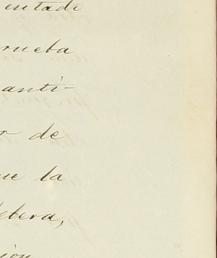 entade
rueba
anti-
r de
ue la
debera,
ion